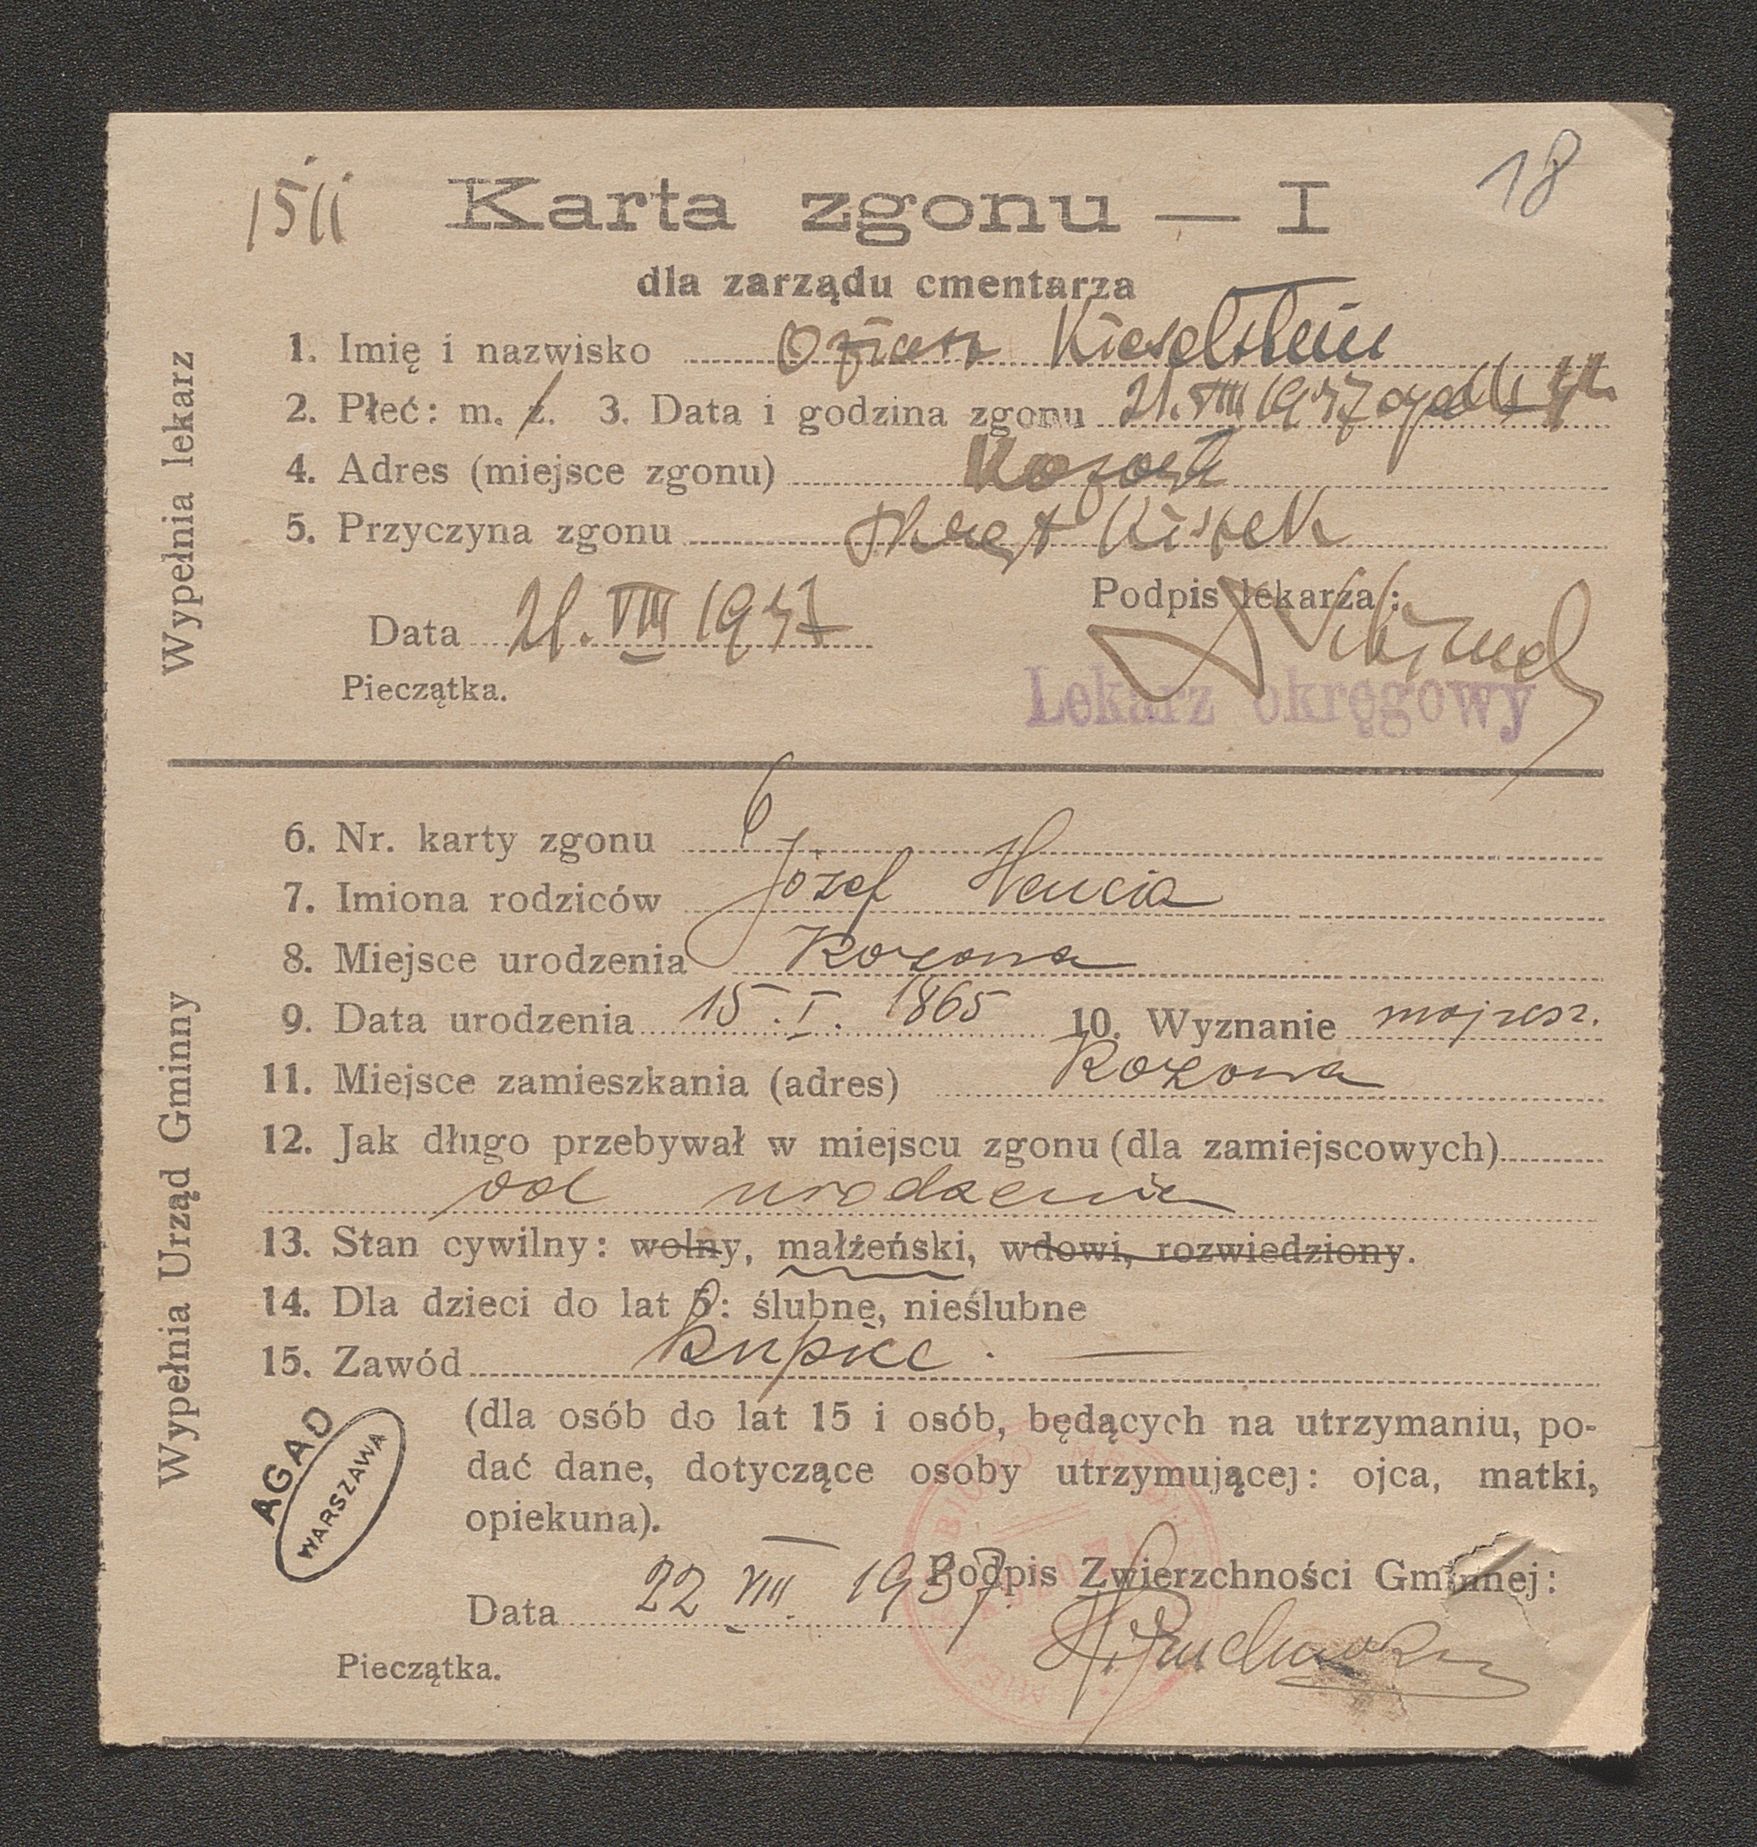 15/II 18
Karta zgonu — I
dla zarządu cmentarza
Wypełnia lekarz
1. Imię i nazwisko Ozjasz Kieselstein
2. Płeć: m. ż. 3. Data i godzina zgonu 21. VIII 1937
4. Adres (miejsce zgonu)
5. Przyczyna zgonu Skręt Kiszek
Podpis lekarza:
Data 21. VIII 1937
Pieczątka.
Lekarz okręgowy
Wypełnia Urząd Gminny
6. Nr. karty zgonu 6
7. Imiona rodziców Józef Hencia
8. Miejsce urodzenia Kozowa
9. Data urodzenia 15. I. 1865 10. Wyznanie mojżesz.
11. Miejsce zamieszkania (adres) Kozowa
12. Jak długo przebywał w miejscu zgonu (dla zamiejscowych)
od urodzenia
13. Stan cywilny: wolny, małżeński, wdowi, rozwiedziony.
14. Dla dzieci do lat 5: ślubne, nieślubne
15. Zawód kupiec. —
(dla osób do lat 15 i osób, będących na utrzymaniu, po-
dać dane, dotyczące osoby utrzymującej: ojca, matki,
opiekuna).
AGAD
WARSZAWA
Podpis Zwierzchności Gminnej:
Data 22 VIII. 1937.
Pieczątka.